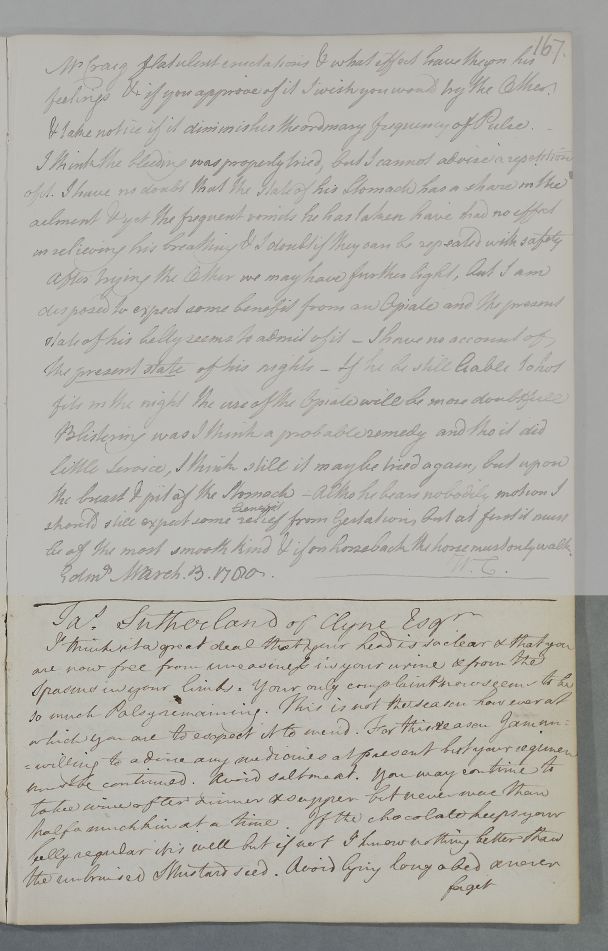 167.
Mr Craig flatulent eructations & what effect have they on his
feelings & if you approve of it I wish you would try the Æther.
& take notice if it diminishes the ordinary frequency of Pulse. -
I think the bleeding was properly tried, but I cannot advise a repetition
of it. I have no doubt that the state of his Stomach has a share in the
ailment & yet the frequent vomits he has taken have had no effect
in relieving his breathing & I doubt if they can be repeated with safety
After trying the Æther we may have further light, but I am
disposed to expect some benefit from an Opiate and the present
state of his belly seems to admit of it - I have no account of
the present state of his nights - If he be still liable to hot
fits in the night the use of the Opiate will be more doubtfull
Blistering was I think a probable remedy and tho it did
little service, I think still it may be tried again, but upon
the breast & pit of the Stomach - Altho he bears no bodily motion I
Benefit
should still expect some relief from Gestation, but at first it must
be of the most smooth kind & if on horseback the horse must only walk.
Edinr March. 13. 1780. W. C.
Jas. Sutherland of Clyne Esqr
I think it a great deal that your head is so clear & that you
are now free from uneasiness in your urine & from the
spasms in your limbs. Your only complaint now seems to be
so much Palsy remaining. This is not the season however at
which you are to expect it to mend. For this reason I am un=
=willing to advise any medicines at present but your regimen
must be continued. Avoid salt meat. You may continue to
take wine after dinner & supper but never more than
half a mutchkin at a time If the chocolate keeps your
belly regular it is well but if not I know nothing better than
the unbruised Mustard seed. Avoid lying long abed & never
forget